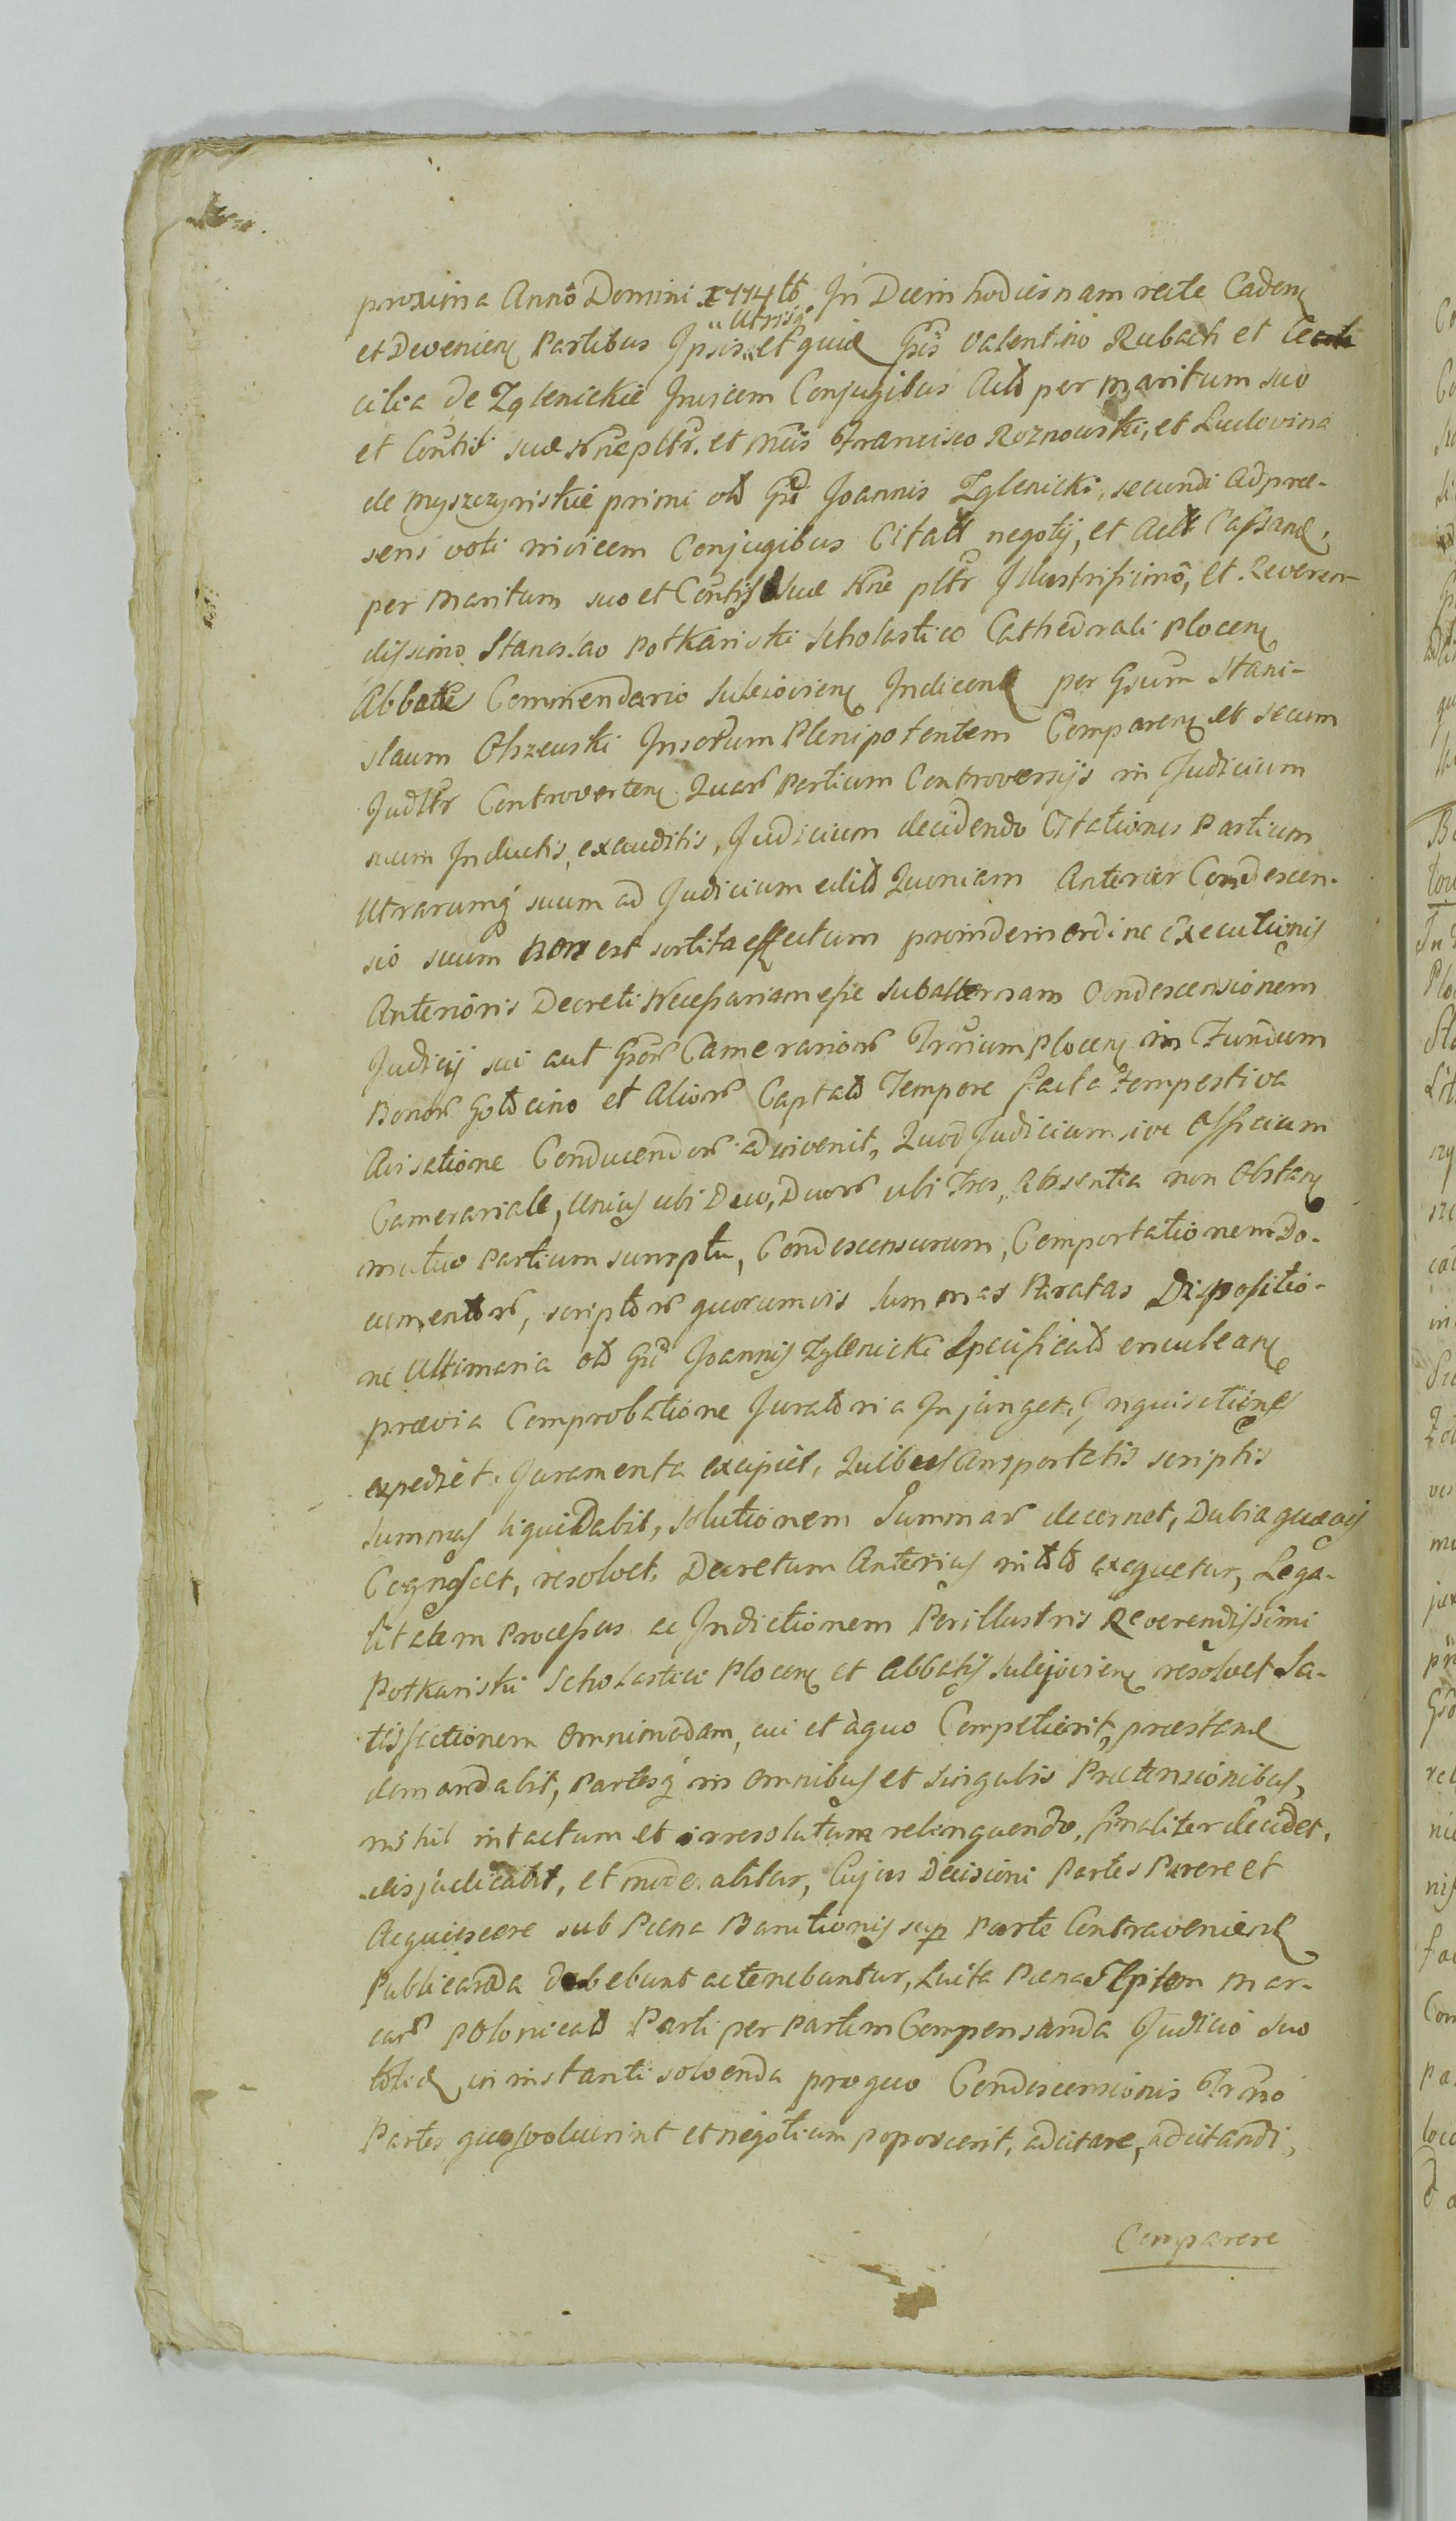 proxima Anno Domini 1774to In Diem hodiernam recte Caden
et Devenien Partibus Ipsis „Utrisq“ et quid Gsis Valentino Rubach et Ce
cilia de Zglenickie Invicem Conjugibus Actd per maritum suo
et Contis suæ Nne pltr. et Mcis Francisco Roznowski, et Ludovina
de Myszczynskie primi old Gsi Joannis Zglenicki, secundi ad præ-
sens voti invicem Conjugibus Citatt negotij, et Actt Cassand,
per Maritum suo et Contis suæ Nne pltr Illustrissimo, et Reveren-
dissimo Stanislao Potkański Scholastico Cathedrali Plocen
Abbate Commendario Sulejovien Indicend per Gsum Stani-
slaum Olszewski Insertum Plenipotentem Comparen et secum
Judltr Controverten Quar Partium Controversijs in Judicium
suum Inductis, exauditis, Judicium decidendo Citationes Partium
Utrarumq suum ad Judicium edid Quoniam Anterior Condescen-
sio suum non est sortita effectum proinde in ordine Executionis
Anterioris Decreti Necessariam esse Subalternam Condescensionem
Judicij sui aut Gsor Camerarior Trrium Plocen in Fundum
Bonor Gotdcino et Alior Captatd Tempore facta tempestiva
Avisatione Conducendor adinvenit, Quod Judicium sive Officium
Camerariale, Unius ubi Duo, Duor ubi Tres, Absentia non Obstan
mutuo Partium sumptu, Condescensurum, Comportationem Do-
cumentor, scriptor quorumvis Summas Paratas Dispositio-
ne Ultimaria old Gsi Joannis Zglenicki Specificatd enuclean
prævia Comprobatione Juratoria Injunget, Inquisitiones
expediet. Juramenta excipiet, Quibus Comportatis scriptis
summas liquidabit, solutionem Summar decernet, Dubia quævis
Cognoscet, resolvet, Decretum Anterius in toto exequetur, Lega-
litatem Processus ac Indictionem Perillustris Reverendissimi
Potkański Scholastici Plocen et Abbatis Sulejovien resolvet Sa-
tisfactionem Omnimodam, cui et à quo Competierit, præstand
demandabit, Partesq in Omnibus et Singulis Prætensionibus,
nihil intactum et irresolutum relinquendo, finaliter decidet,
disjudicabit, et moderabitur, Cujus Decisioni Partes Parere et
Acquiescere sub Pæna Banitionis sup Parte Contravenient
Publicanda debebunt ac tenebuntur, Luita Pæna Septem Mar-
car Polonicald Parti per Partem Compensanda Judicio suo
totid in instanti solvenda pro quo Condescensionis Trmo
Partes quos voluerint et negotium poposcerit, adcitare, adcitandi,
Comparere